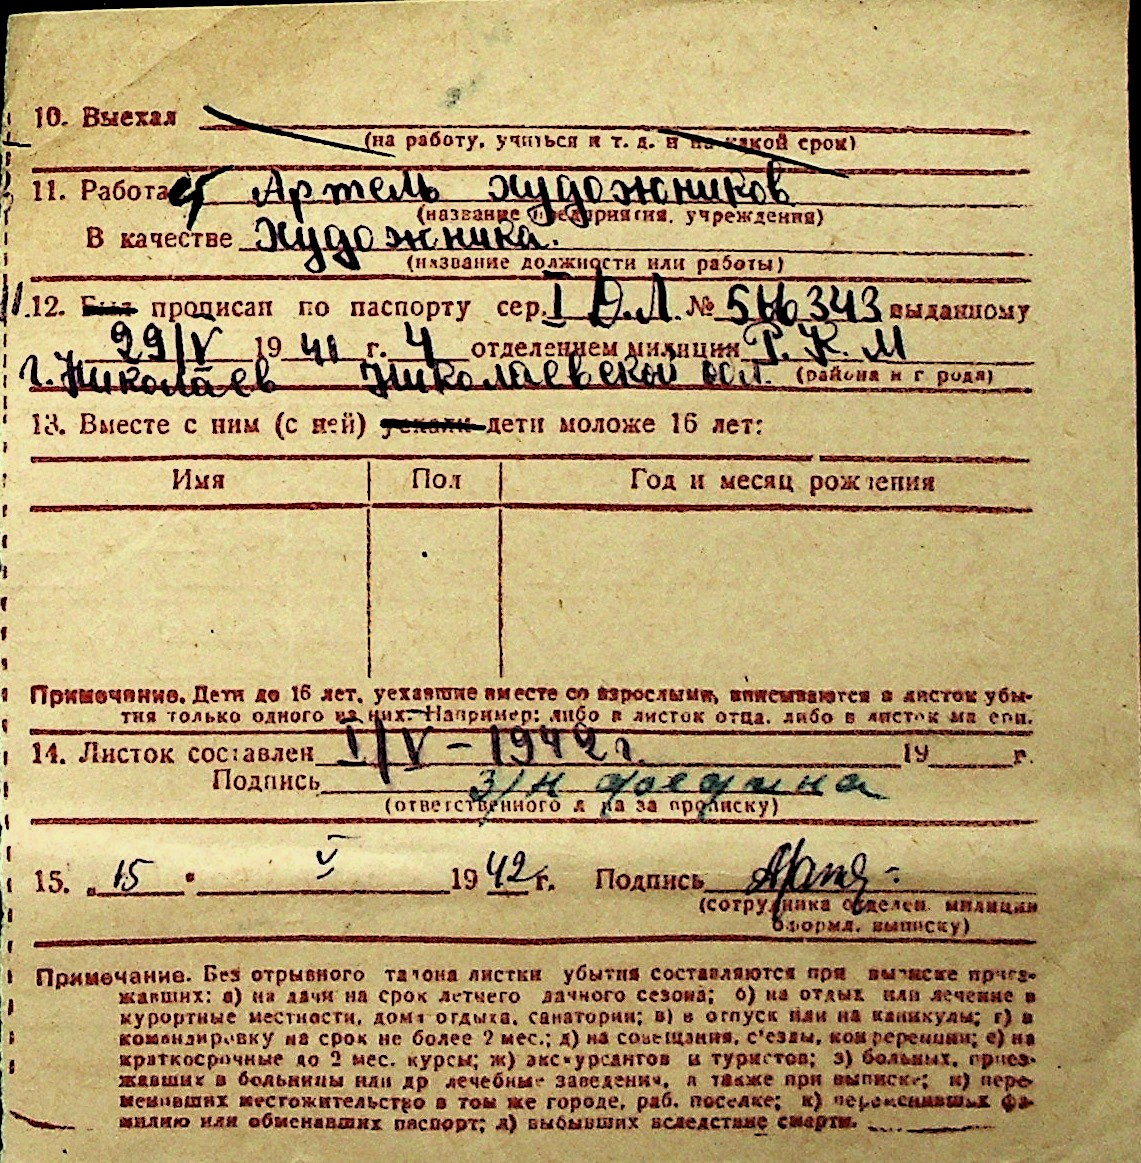 10. Выехал
(на работу, учиться и т. д. и на какой срок)
11. Работает Артель художников
(название предприятия, учреждения)
В качестве Художника.
(название должности или работы)
12. Был прописан по паспорту сер. I Д.Л. № 516343 выданному
29/V 19 41 г. 4 отделением милиции Р. К. М
г. Николаев Николаевской обл. (района и г рода)
13. Вместе с ним (с ней) уехали дети моложе 16 лет:
Имя Пол Год и месяц рождения
Примечание. Дети до 16 лет, уехавшие вместе со взрослыми, вписываются в листок убы-
тия только одного из них. Например: либо в листок отца, либо в листок матери.
14. Листок составлен I/V – 1942 г. 19 г.
Подпись
(ответственного л на за прописку)
15. „ 15 " V 19 42 г. Подпись
(сотрудника отделен. милиции
оформл. выписку)
Примечание. Без отрывного талона листки убытия составляются при выписке приез-
жавших: а) на дачи на срок летнего дачного сезона; б) на отдых или лечение в
курортные местности, дома отдыха, санатории; в) в отпуск или на каникулы; г) в
командировку на срок не более 2 мес.; д) на совещания, с'езды, конференции; е) на
краткосрочные до 2 мес. курсы; ж) экскурсантов и туристов; з) больных, приез-
жавших в больницы или др лечебные заведения, а также при выписке; и) пере-
менивших местожительство в том же городе, раб. поселке; к) переменивших фа-
милию или обменавших паспорт; л) выбывших вследствие смерти.